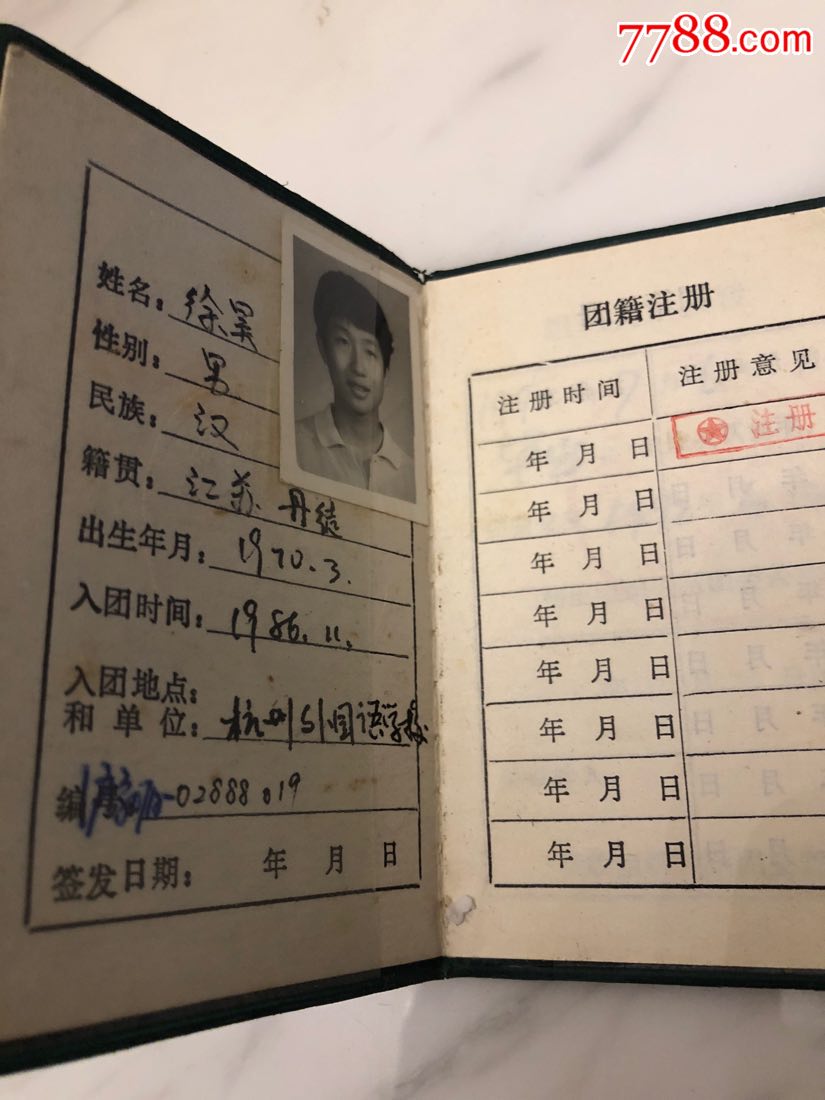 7788.com
姓名：徐昊
性别：男
民族：汉
籍贯：江苏 丹徒
出生年月：1970.3.
入团时间：1986.11.
入团地点：
和单位：杭州外国语学校
编号 02888019
签发日期： 年 月 日
团籍注册
注册时间 注册意见
注册
年 月 日
年 月 日
年 月 日
年 月 日
年 月 日
年 月 日
年 月 日
年 月 日